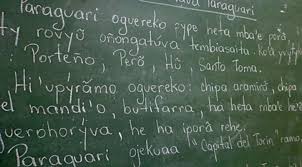 Paraguarí
Paraguarí oguereko pype heta mba'e porã,
ty rovyũ oñongatúva tembiasaita. Ko'ã
Porteño, Perõ, Hũ Santo Toma.
Hi'upyrãmo oguereko: chipa aramirõ, chipa
el mandi'o, butifarra, ha heta mba'e
he ha iporã rehe.
Paraguarí ojekuaa "Capital del Torín" ramo